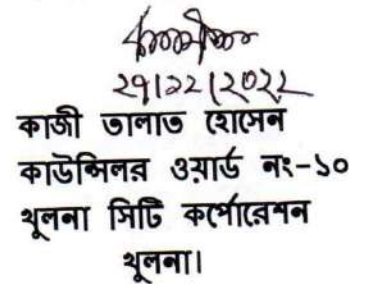 ২৭|১২|২০২২
কাজী তালাত হোসেন
কাউন্সিলর ওয়ার্ড নং-১০
খুলনা সিটি কর্পোরেশন
খুলনা।